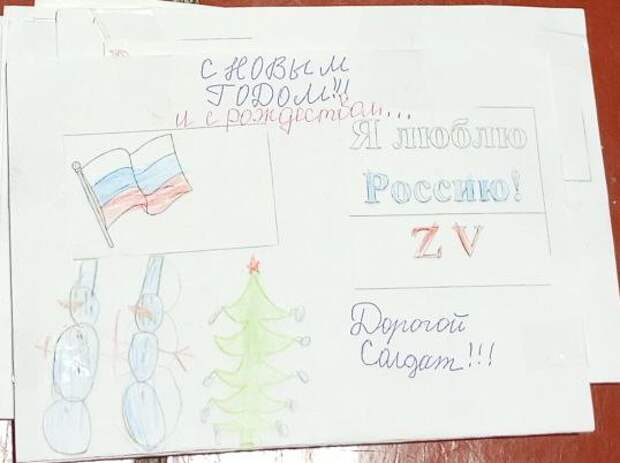 С НОВЫМ
ГОДОМ!!!
и с рождеством...
Я люблю
Россию!
Z V
Дорогой
Салдат!!!